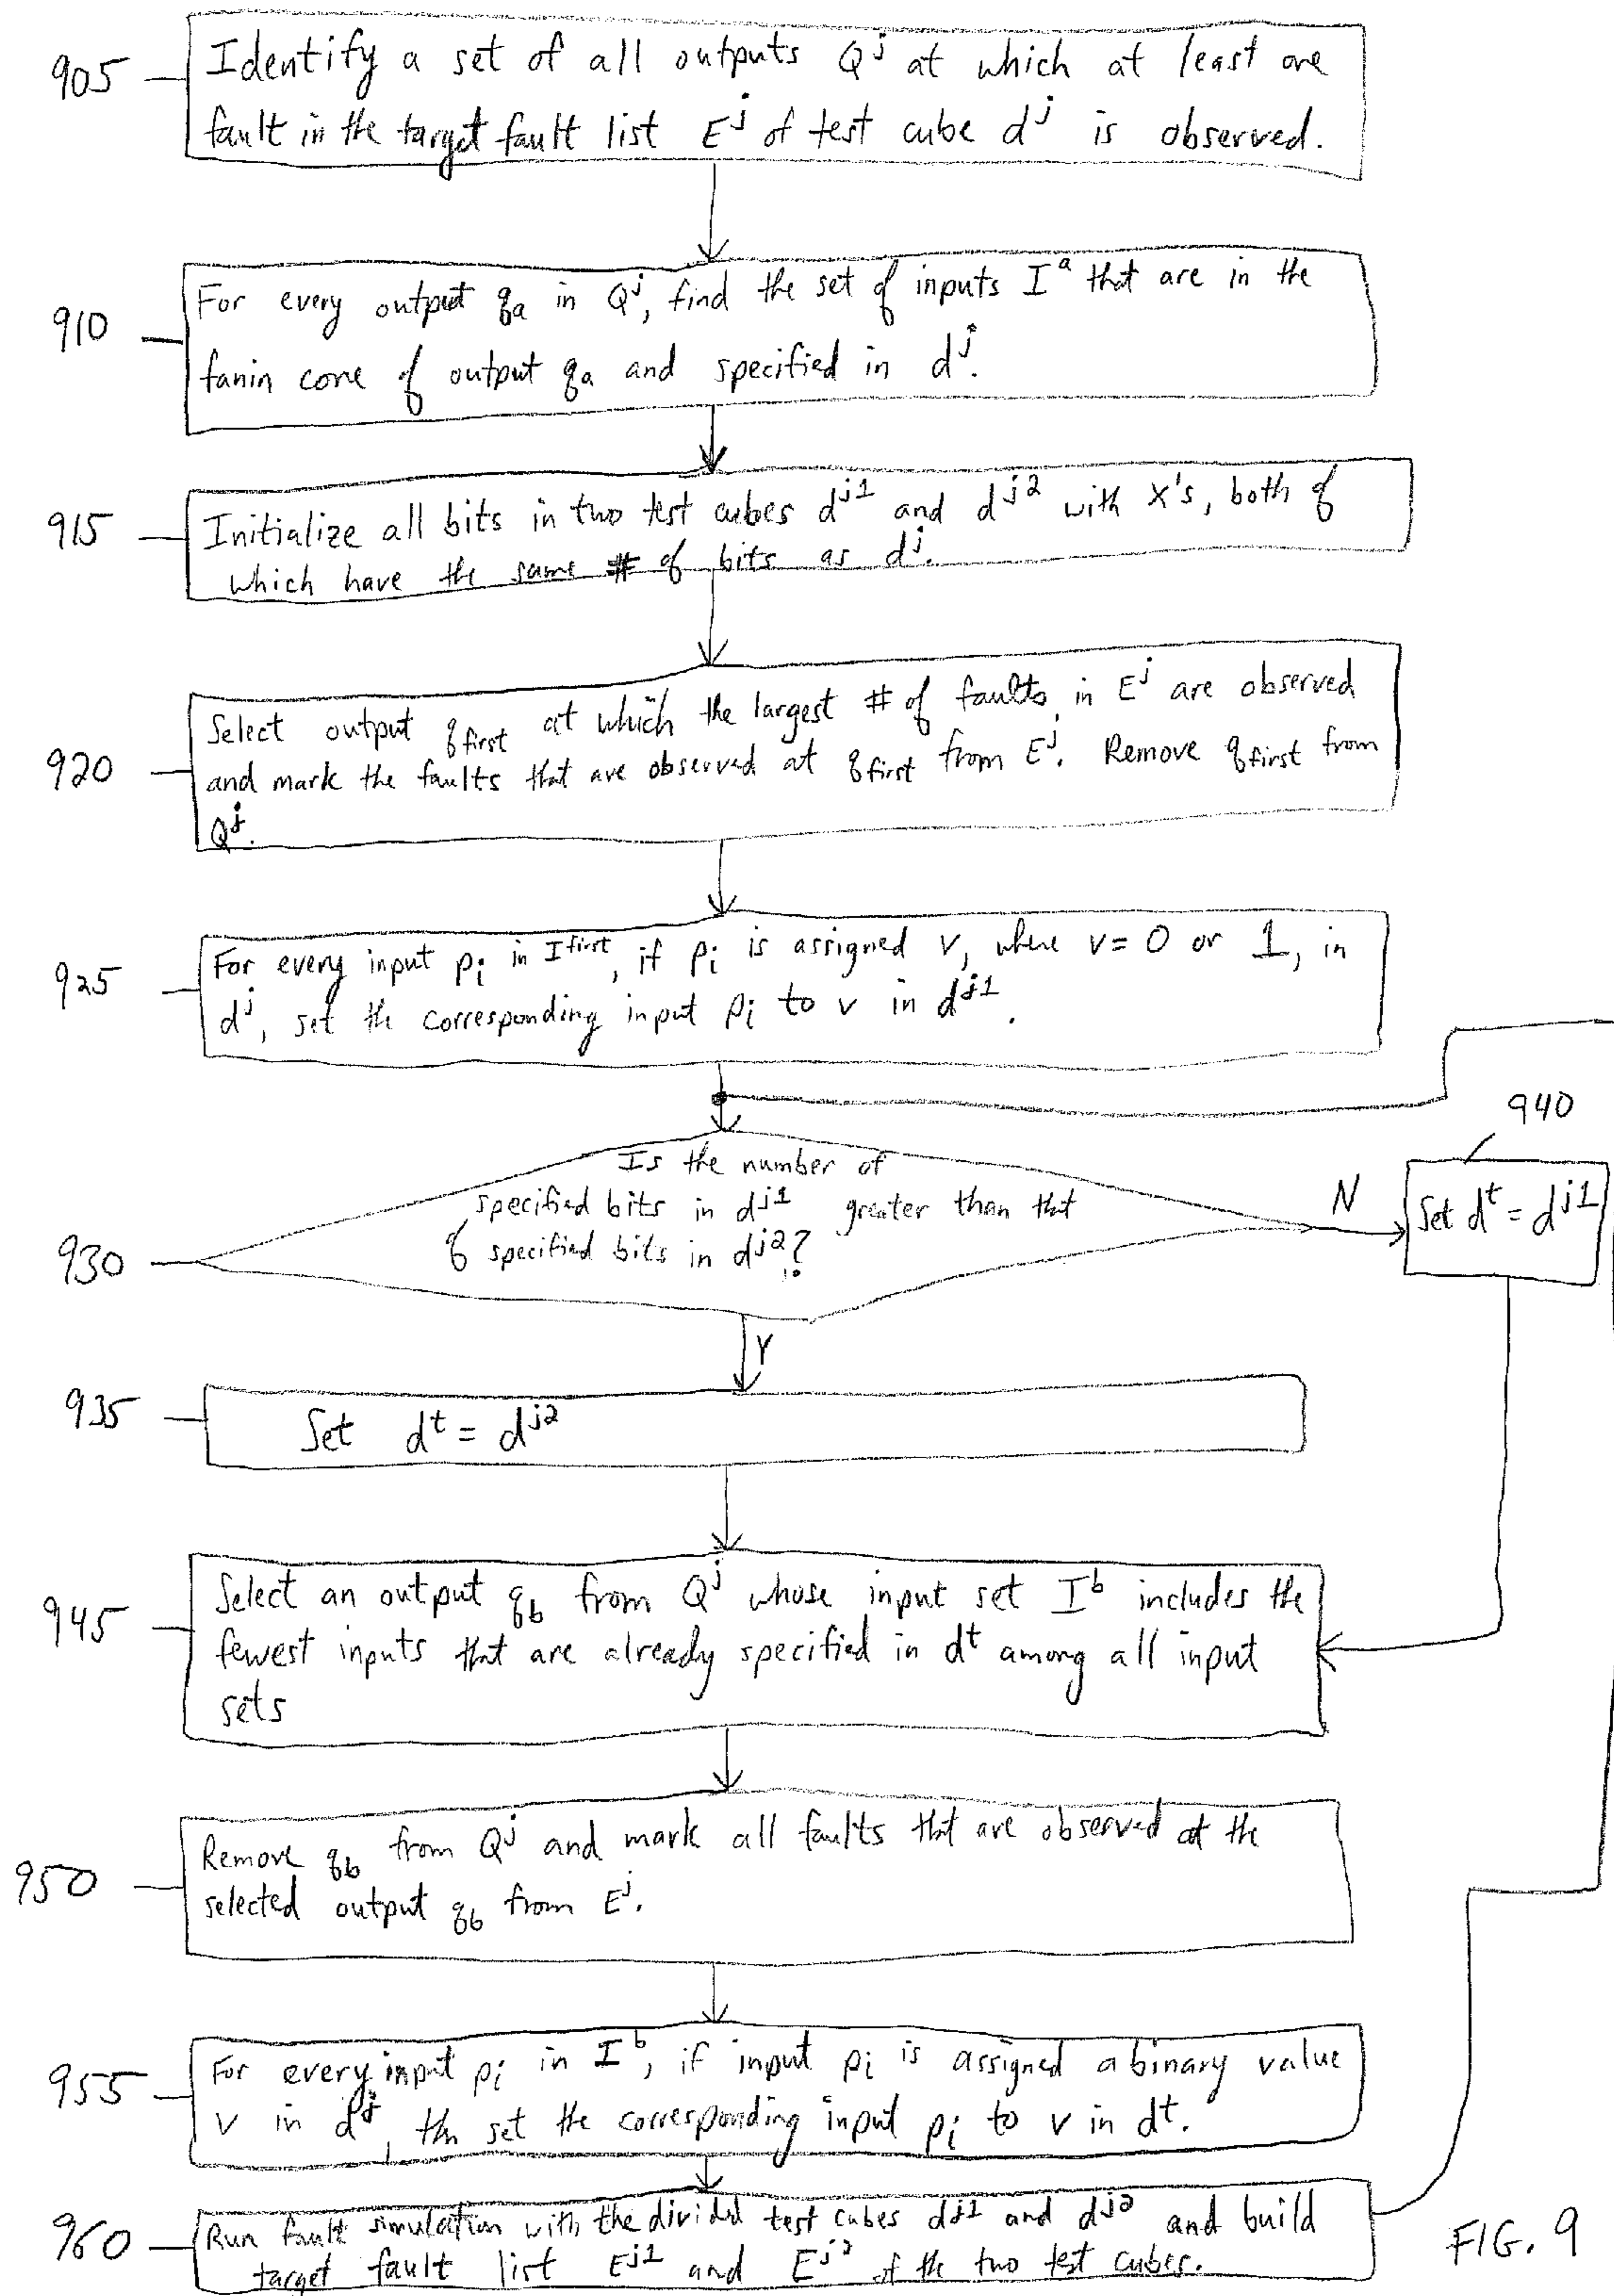 905
Identify a set of all outputs Q^j at which at least one
fault in the target fault list E^j of test cube d^j is observed.
910
For every output q_a in Q^j, find the set of inputs I^a that are in the
fanin cone of output q_a and specified in d^j.
915
Initialize all bits in two test cubes d^j1 and d^j2 with X's, both of
which have the same # of bits as d^j.
920
Select output q_first at which the largest # of faults in E^j are observed
and mark the faults that are observed at q_first from E^j. Remove q_first from
Q^j.
925
For every input p_i in I^first, if p_i is assigned v, where v = 0 or 1, in
d^j, set the corresponding input p_i to v in d^j1.
930
Is the number of
specified bits in d^j1 greater than that
of specified bits in d^j2?
N
940
Set d^t = d^j1
Y
935
Set d^t = d^j2
945
Select an output q_b from Q^j whose input set I^b includes the
fewest inputs that are already specified in d^t among all input
sets
950
Remove q_b from Q^j and mark all faults that are observed at the
selected output q_b from E^j.
955
For every input p_i in I^b, if input p_i is assigned a binary value
v in d^j, then set the corresponding input p_i to v in d^t.
960
Run fault simulation with the divided test cubes d^j1 and d^j2 and build
target fault list E^j1 and E^j2 of the two test cubes.
FIG. 9